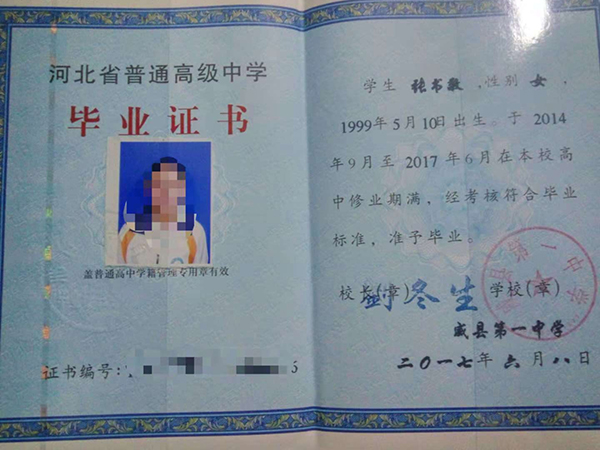 河北省普通高级中学
毕业证书
盖普通高中学籍管理专用章有效
证书编号:
6
学生 张书敏,性别 女,
1999年5月10日出生。于 2014
年9月至 2017 年6月在本校高
中修业期满,经考核符合毕业
标准,准予毕业。
校长(章) 冬生 学校(章)
威县第一中学
二〇一七年六月八日
第一中学